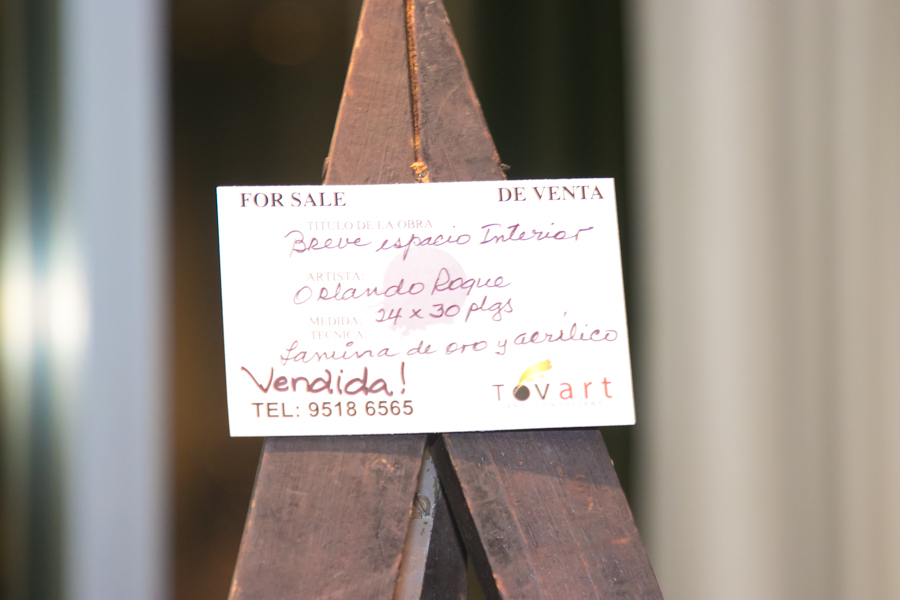 FOR SALE DE VENTA
TITULO DE LA OBRA
Breve espacio Interior
ARTISTA:
Orlando Roque
MEDIDA: 24 x 30 plgs
TECNICA:
Lamina de oro y acrílico
Vendida!
TEL: 9518 6565
Tovart